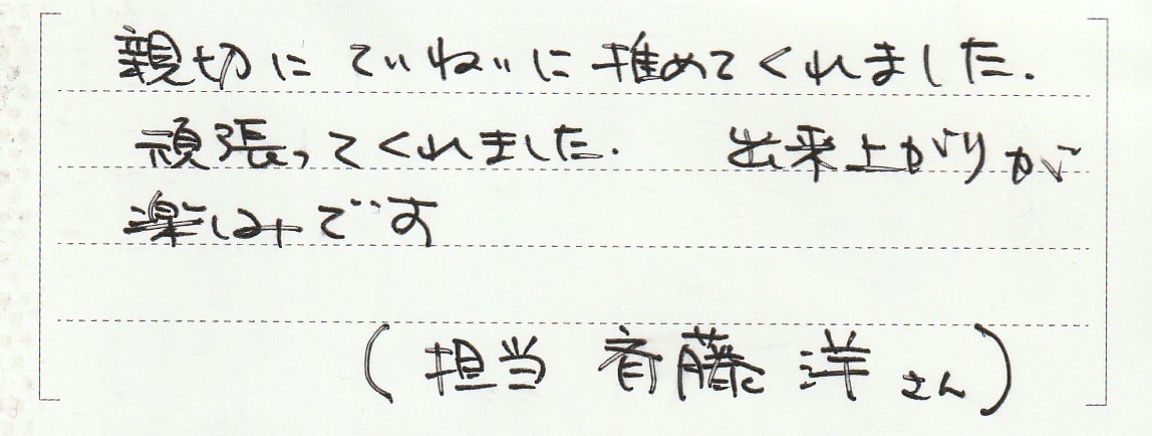 親切に ていねいに進めてくれました.
頑張ってくれました. 出来上がりが
楽しみです
(担当 斉藤 洋 さん)